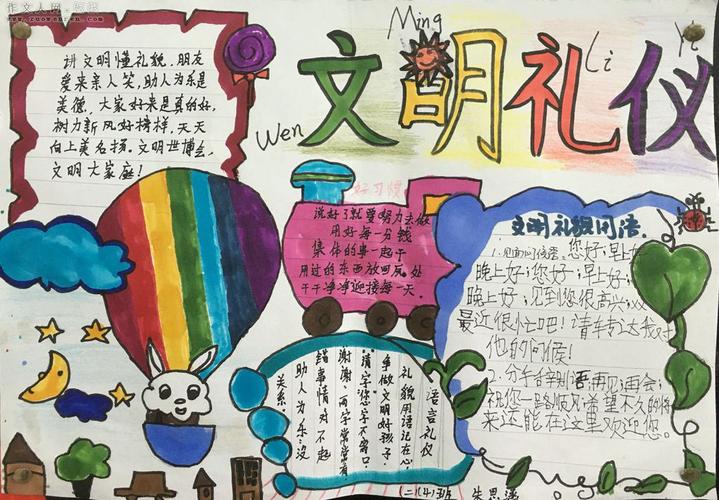 作文人网
Wen Ming Li Yi
文明礼仪
讲文明懂礼貌，朋友
爱来亲人笑，助人为乐是
美德。大家好来是真的好，
树力新风好榜样，天天
向上美名扬。文明世博会，
文明大家庭！
好习惯
说好了就要努力去做
用好每一分钱
集体的事一起干
用过的东西放回原处
干干净净迎接每一天。
语言礼仪
礼貌用语记在心，
争做文明好孩子，
请字您字不离口，
谢谢 两字常常有
错事情对不起
助人为乐没
关系。
文明礼貌用语.
1.见面问候语。您好；早上好
晚上好；您好；早上好；
晚上好；见到您很高兴；
最近很忙吧！请转达我对
他的问候！
2.分手告别语再见；再会；
祝你一路顺风；希望不久的将
来还能在这里欢迎您。
二(4)班